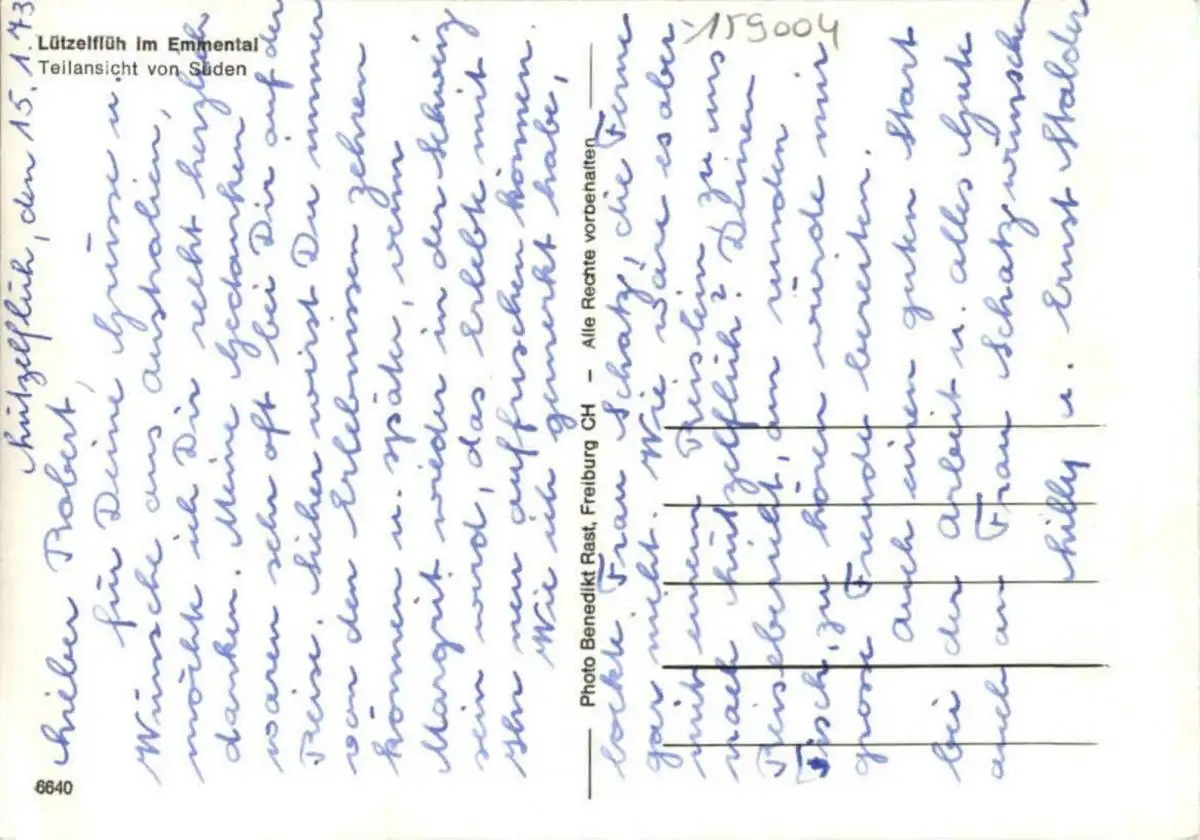 Lützelflüh im Emmental
Teilansicht von Süden
159004
Lützelflüh, den 15. 1. 73
Lieber Robert,
für Deine Grüsse u.
Wünsche aus Australien,
möchte ich Dir recht herzlich
danken. Meine Gedanken
waren sehr oft bei Dir auf der
Reise. Sicher wirst Du immer
von den Erlebnissen zehren
können u. später, wenn
Margrit wieder in der Schweiz
sein wird, das Erlebte mit
Ihr neu auffrischen können.
Wie ich gemerkt habe,
lockte Frau Schatz, die Ferne
gar nicht. Wie wäre es aber
mit einem Reislein zu uns
nach Lützelflüh? Deinen
Reisebericht, am runden
Tisch, zu hören würde mir
grosse Freude bereiten.
Auch einen guten Start
bei der Arbeit u. alles Gute
auch an Frau Schatz wünschen
Lilly u. Ernst Stalder
Photo Benedikt Rast, Freiburg CH – Alle Rechte vorbehalten
6640